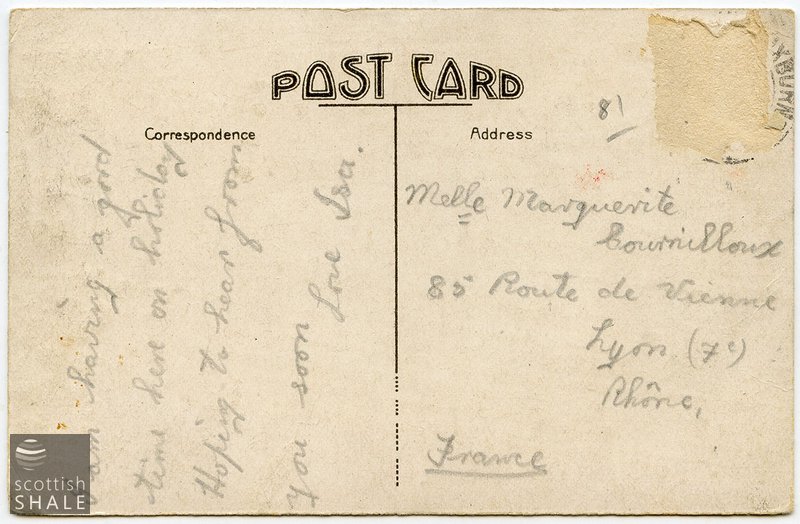 POST CARD
Correspondence
Address
81
am having a good
time here on holiday
Hoping to hear from
you soon
Love Isa.
Melle Marguerite
85 Route de Vienne
Lyon (7e)
Rhône,
France
scottish
SHALE